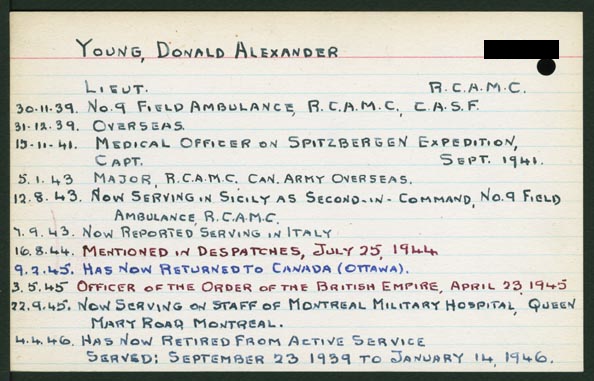 YOUNG, DONALD ALEXANDER
LIEUT. R.C.A.M.C.
30.11.39. NO.9 FIELD AMBULANCE, R.C.A.M.C., C.A.S.F.
31.12.39. OVERSEAS.
15-11-41. MEDICAL OFFICER ON SPITZBERGEN EXPEDITION,
CAPT. SEPT. 1941.
5.1.43 MAJOR, R.C.A.M.C. CAN. ARMY OVERSEAS.
12.8.43. NOW SERVING IN SICILY AS SECOND-IN-COMMAND, NO.9 FIELD
AMBULANCE, R.C.A.M.C.
7.9.43. NOW REPORTED SERVING IN ITALY
16.8.44. MENTIONED IN DESPATCHES, JULY 25, 1944
9.2.45. HAS NOW RETURNED TO CANADA (OTTAWA).
3.5.45 OFFICER OF THE ORDER OF THE BRITISH EMPIRE, APRIL 23 1945
22.9.45. NOW SERVING ON STAFF OF MONTREAL MILITARY HOSPITAL, QUEEN
MARY ROAD, MONTREAL.
4.4.46. HAS NOW RETIRED FROM ACTIVE SERVICE
SERVED: SEPTEMBER 23 1939 TO JANUARY 14, 1946.